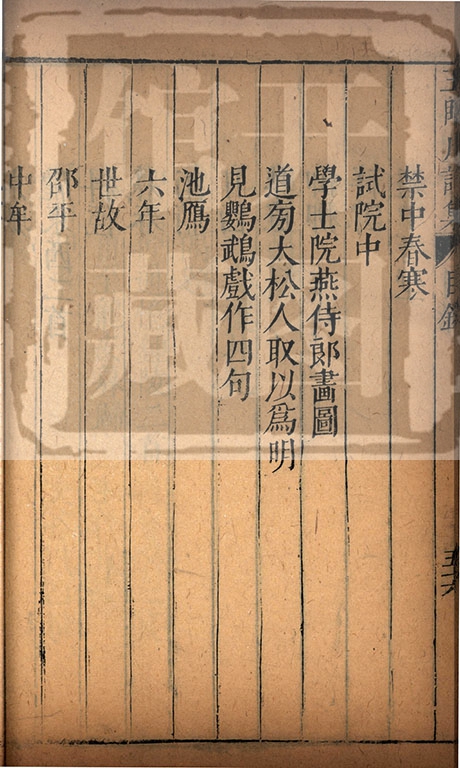 禁中春寒
試院中
學士院燕侍郎畫圖
道旁大松人取以為明
見鸚鵡戲作四句
池鴈
六年
世故
邵平
中牟